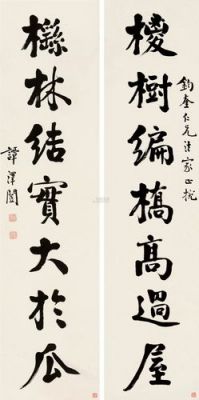 鈞奎仁兄法家正捥
椶樹編橋高過屋
櫾林結實大於瓜
譚澤闓